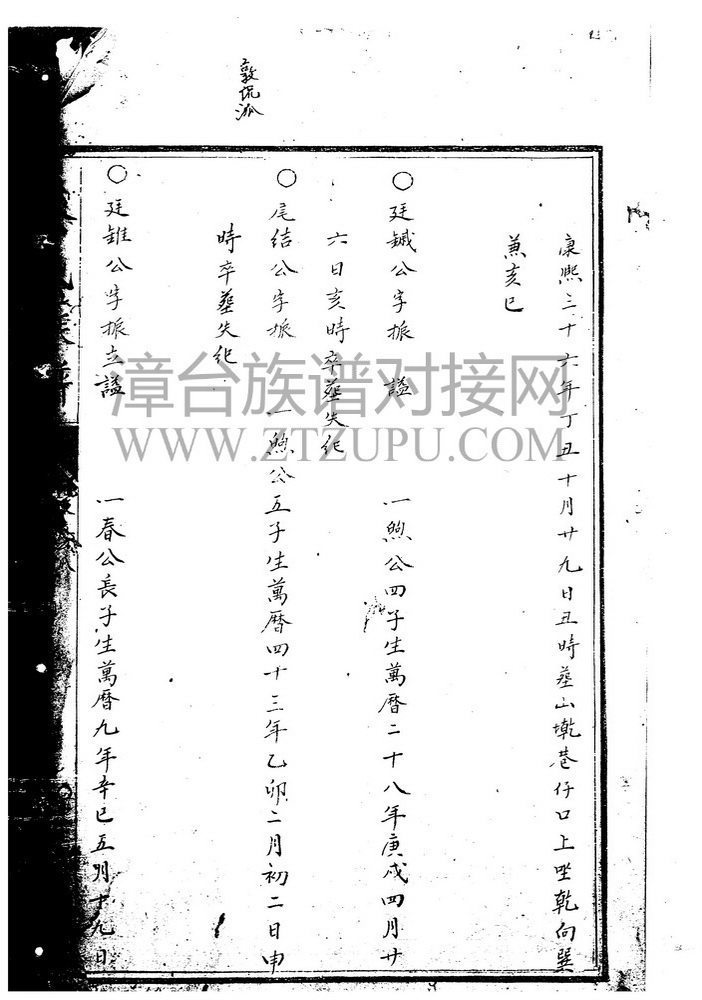 康熙三十六年丁丑十月廿九日丑時葬山墘巷仔口上坐乾向巽
兼亥巳
○廷鏚公字振 諡 一煦公四子生萬曆二十八年庚戌四月廿
六日亥時卒葬失紀
○尾结公字振 一煦公五子生萬曆四十三年乙卯二月初二日申
時卒葬失紀
○廷錐公字振立諡 一春公長子生萬曆九年辛巳五月十九日
漳台族谱对接网
WWW.ZTZUPU.COM